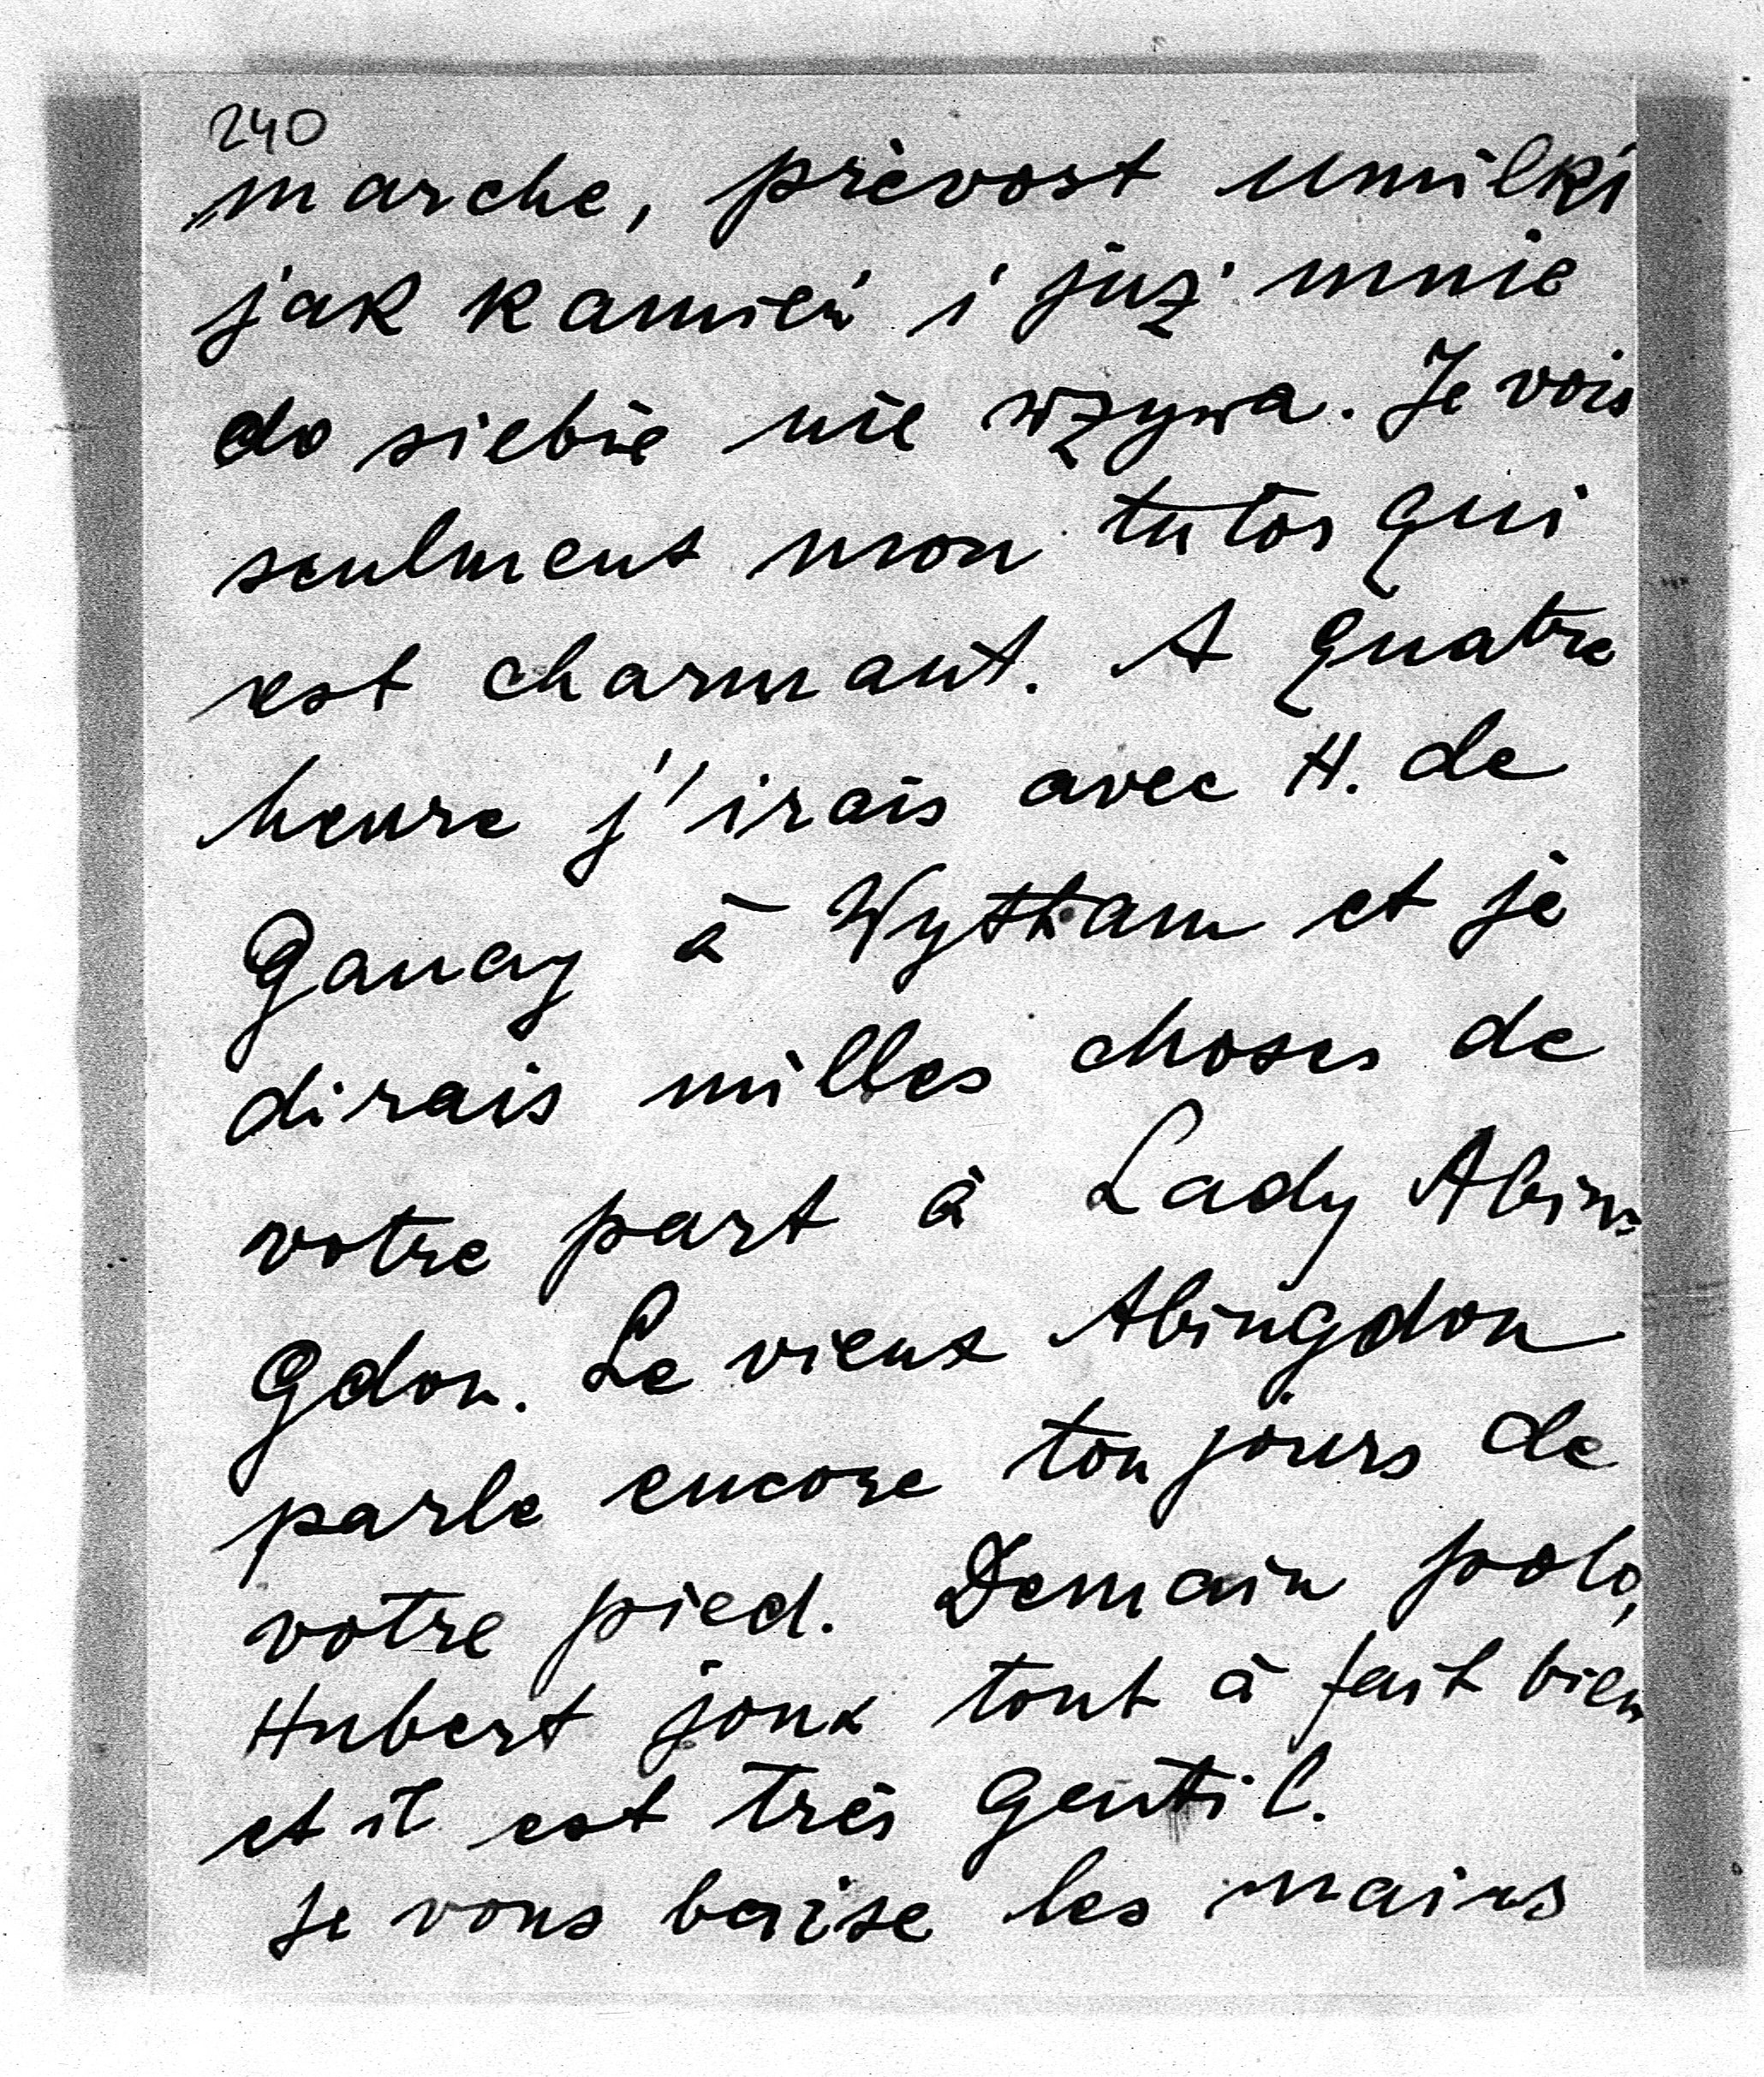 240
marche, prèvost umilkł
jak kamień i już mnie
do siebie nie wzywa. Je vois
seulment mon tutor qui
est charmant. A quatre
heure j'irais avec H. de
Ganay à Wytham et je
dirais milles choses de
votre part à Lady Abin-
gdon. Le vieux Abingdon
parle encore toujours de
votre pied. Demain polo,
Hubert joue tout à fait bien
et il est très gentil.
Je vous baise les mains